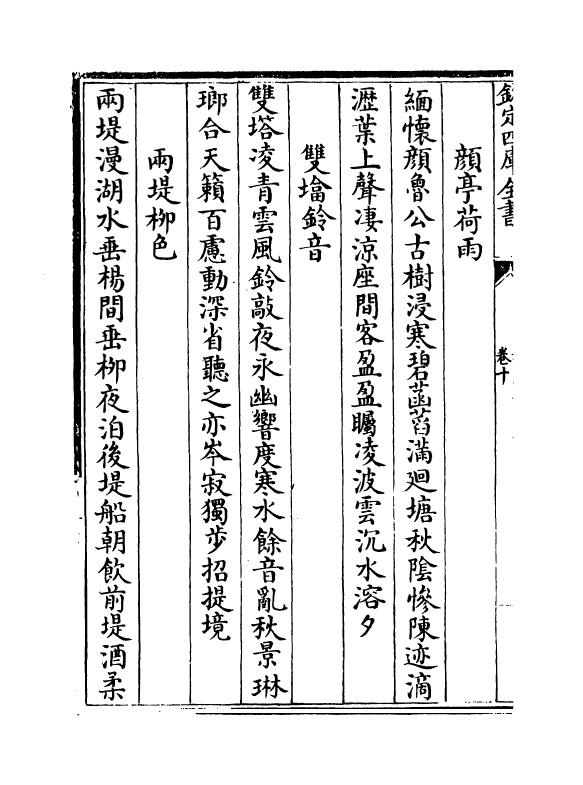 欽定四庫全書
卷十
顔亭荷雨
緬懷顔魯公古樹浸寒碧菡萏滿廻塘秋陰慘陳迹滴
瀝葉上聲凄涼座間客盈盈矚凌波雲沉水溶夕
雙墖鈴音
雙塔凌青雲風鈴敲夜永幽響度寒水餘音亂秋景琳
瑯合天籟百慮動深省聽之亦岑寂獨步招提境
兩堤柳色
兩堤漫湖水垂楊間垂柳夜泊後堤船朝飲前堤酒柔